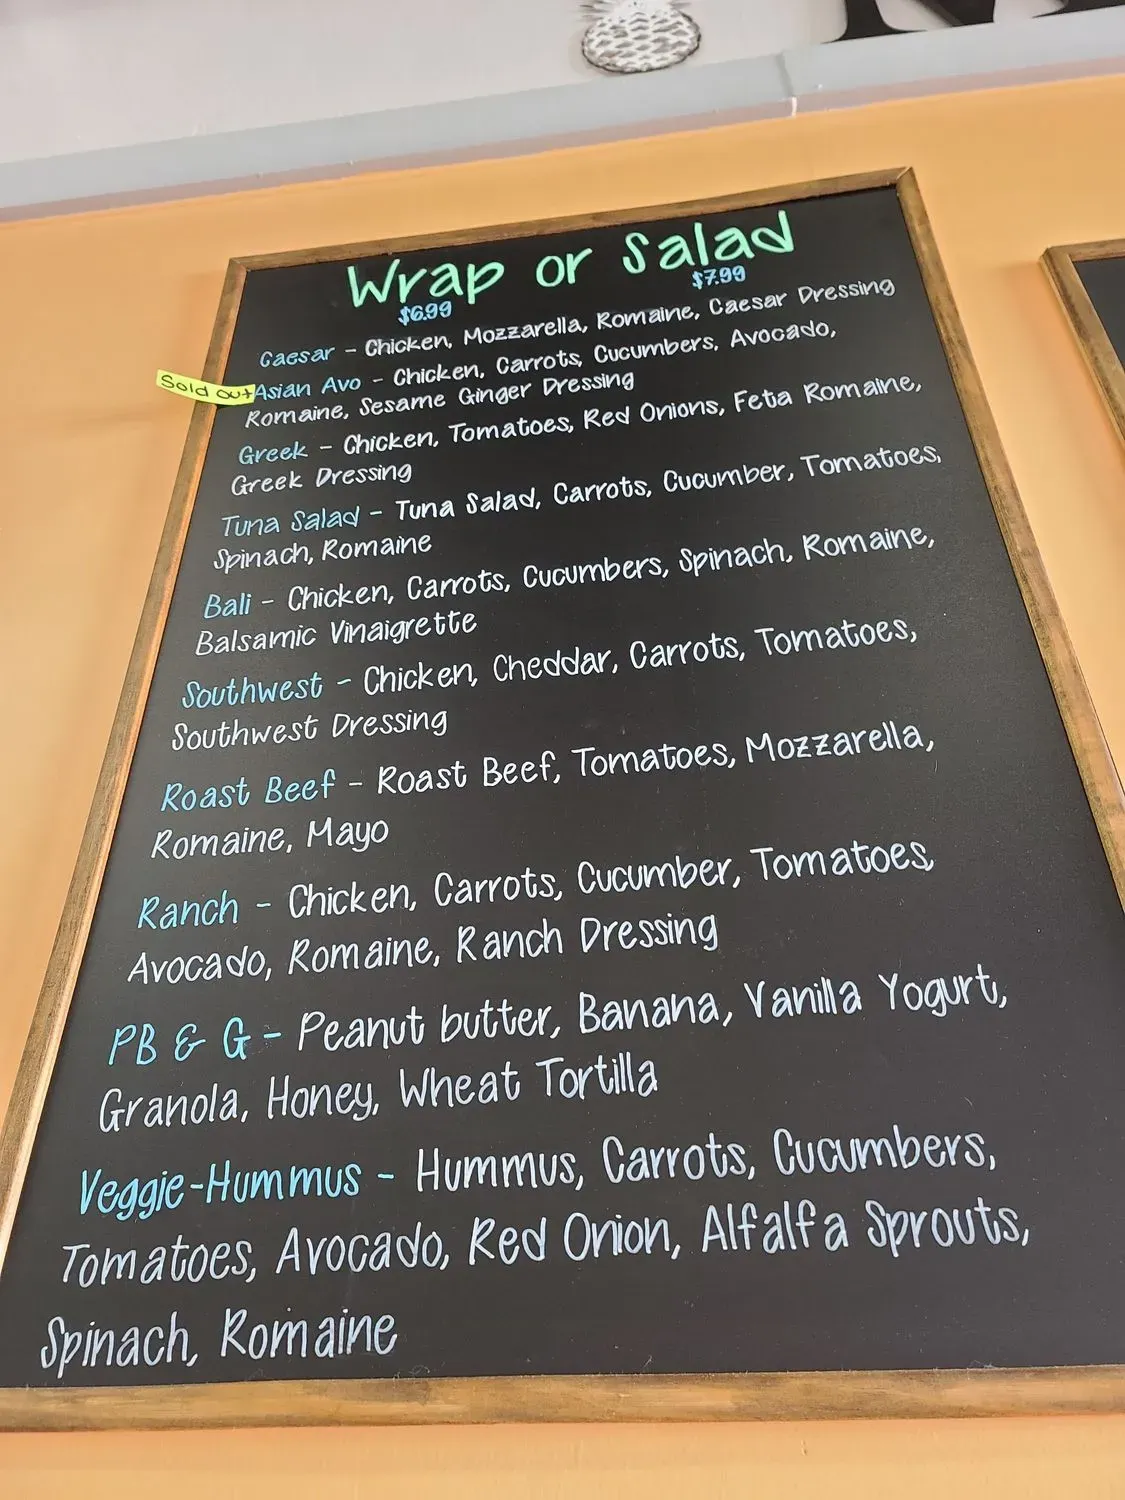 Wrap or Salad
$6.99 $7.99
Caesar - Chicken, Mozzarella, Romaine, Caesar Dressing
Sold out
Asian Avo - Chicken, Carrots, Cucumbers, Avocado,
Romaine, Sesame Ginger Dressing
Greek - Chicken, Tomatoes, Red Onions, Feta Romaine,
Greek Dressing
Tuna Salad - Tuna Salad, Carrots, Cucumber, Tomatoes,
Spinach, Romaine
Bali - Chicken, Carrots, Cucumbers, Spinach, Romaine,
Balsamic Vinaigrette
Southwest - Chicken, Cheddar, Carrots, Tomatoes,
Southwest Dressing
Roast Beef - Roast Beef, Tomatoes, Mozzarella,
Romaine, Mayo
Ranch - Chicken, Carrots, Cucumber, Tomatoes,
Avocado, Romaine, Ranch Dressing
PB & G - Peanut butter, Banana, Vanilla Yogurt,
Granola, Honey, Wheat Tortilla
Veggie-Hummus - Hummus, Carrots, Cucumbers,
Tomatoes, Avocado, Red Onion, Alfalfa Sprouts,
Spinach, Romaine